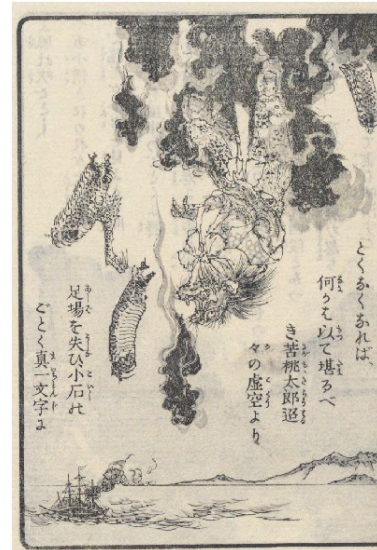 とくなくなれば、
何かは以て堪るべ
き苦桃太郎迢
々の虚空より
足場を失ひ小石の
ごとく真一文字に